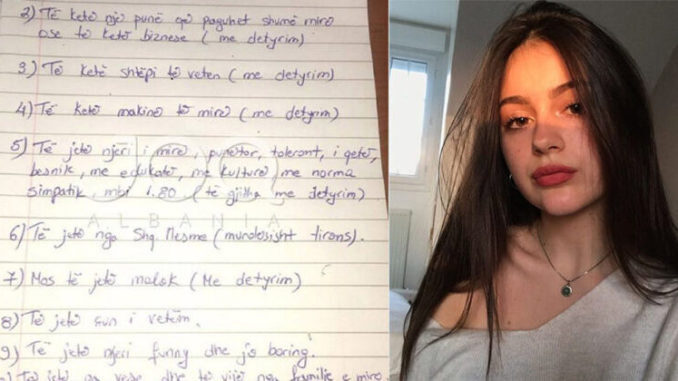 2) Të ketë një punë që paguhet shumë mirë
ose të ketë biznese (me detyrim)
3) Të ketë shtëpi të veten (me detyrim)
4) Të ketë makinë të mirë (me detyrim)
5) Të jetë njëri i mirë, punëtor, tolerant, i qetë,
besnik, me edukatë, me kulturë me norma
simpatik, mbi 1.80 (të gjitha me detyrim)
ALBANIA
6) Të jetë nga Shq. Mesme (mundësisht tirons).
7) Mos të jetë malok (Me detyrim)
8) Të jetë sun i vetëm.
9) Të jetë njeri funny dhe jo boring.
Të jetë pa vese dhe të vijë nga familje e mirë